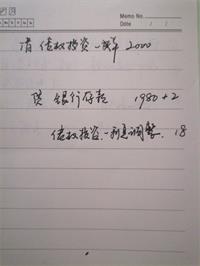 Memo No.
Date / /
借 债权投资-成本 2000
贷 银行存款 1980+2
债权投资-利息调整 18